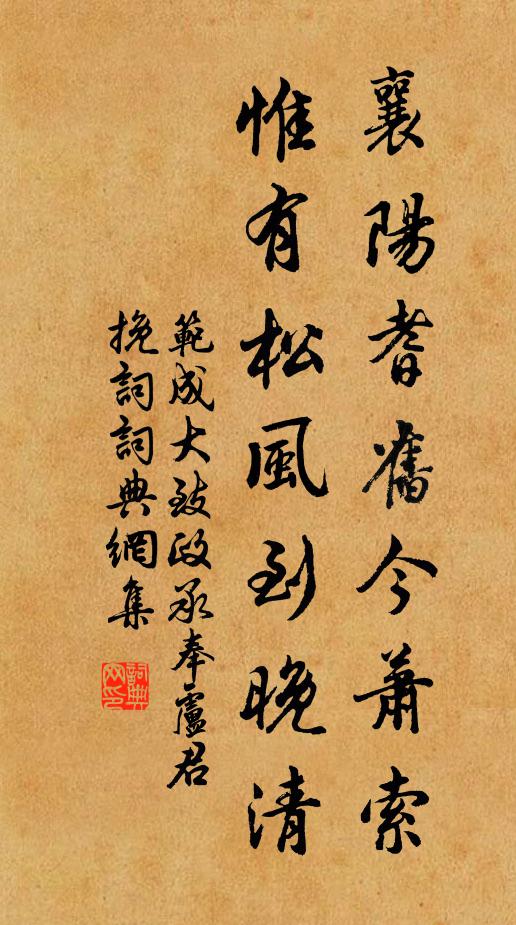 襄陽耆舊今蕭索
惟有松風到晚清
範成大致政承奉盧君
挽詞詞典網集
詞典网印